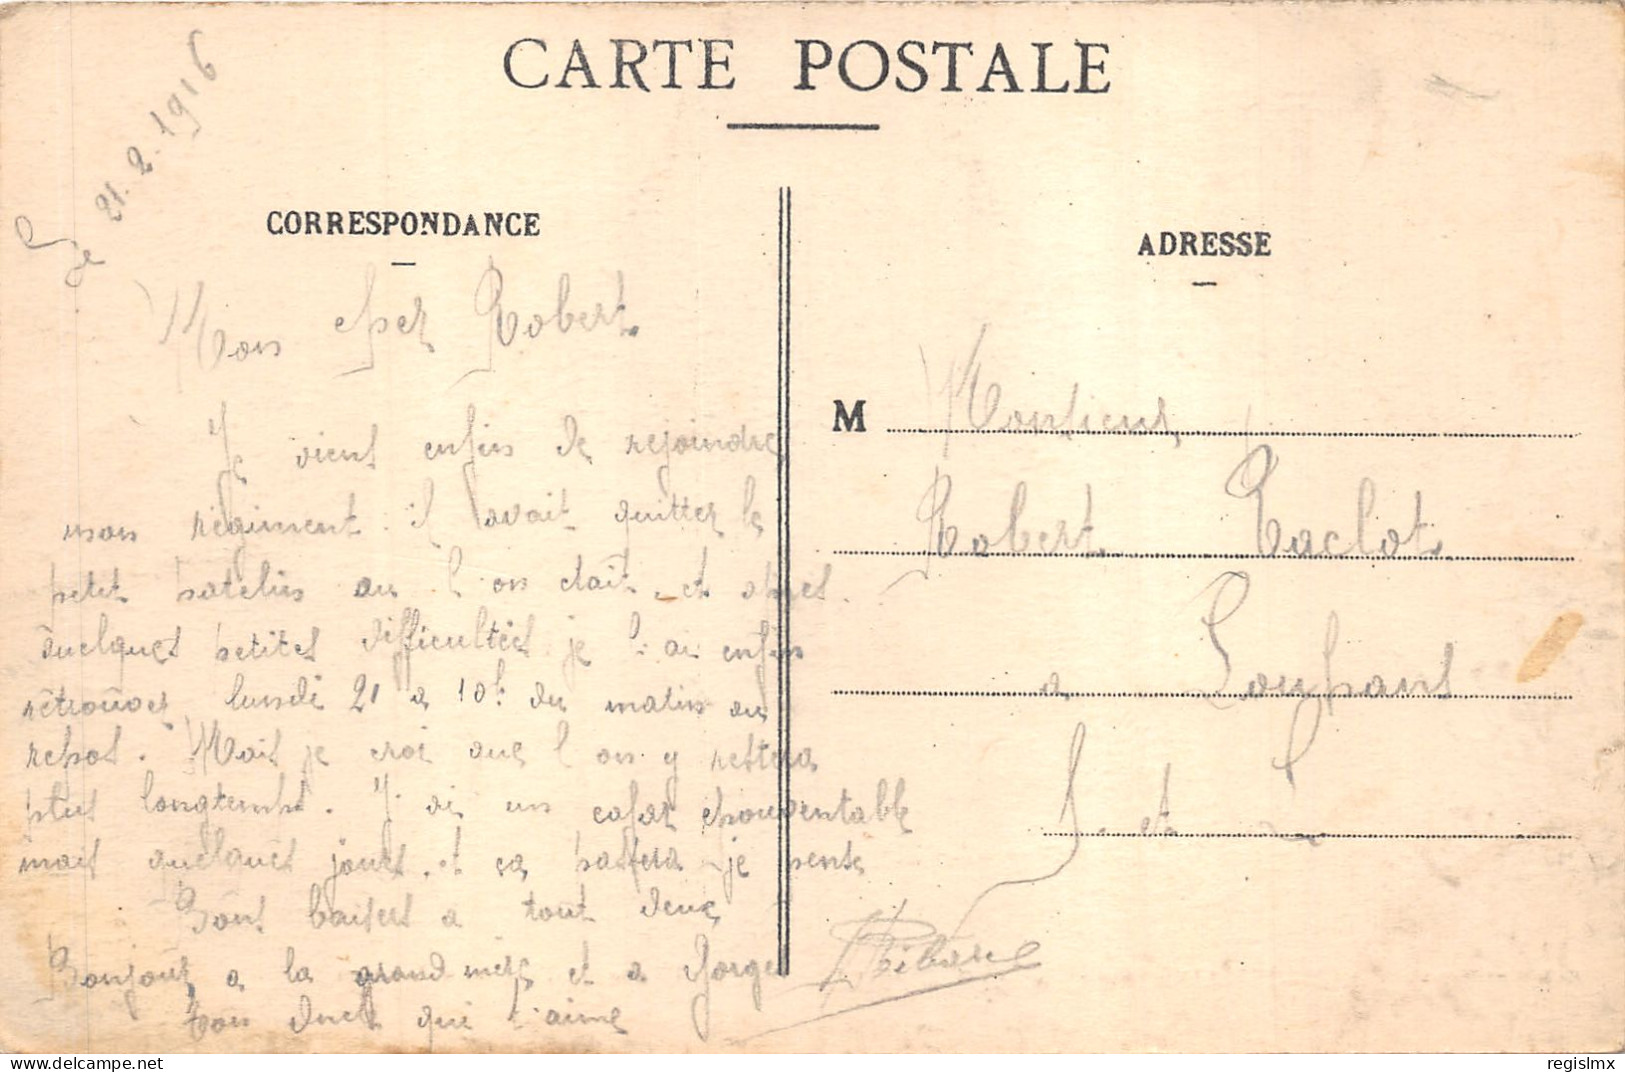 CARTE POSTALE
Le 21.2.1916
CORRESPONDANCE
Mon cher Robert
Je vient enfin de rejoindre
mon régiment. il avait quitter le
petit patelin ou l on etait. et apres
quelques petites difficultées je l ai enfin
rétrouver lundi 21 a 10h du matin au
repos. Mais je croi que l on y restera
plus longtemps. J ai un cafar epouventable
mais quelques jours et ça passera je pense
Bons baisers a tout deux
Bonjour a la grand mère et a Gorge
ton oncle qui t'aime
ADRESSE
M Monsieur
Robert
a Louhans
S. et L
delcampe.net
regislmx